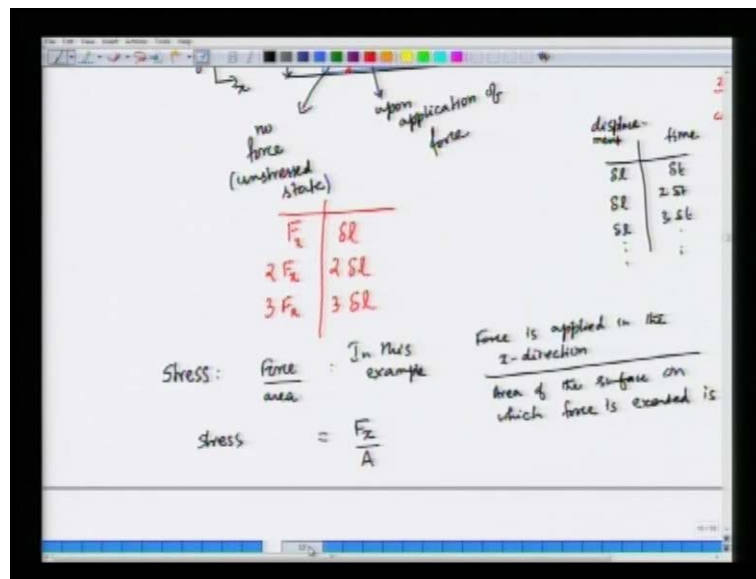 x
no force (unstressed state)
upon application of force
F_x | δl
2 F_x | 2 δl
3 F_x | 3 δl
displace-ment | time
δl | δt
δl | 2 δt
δl | 3 δt
: | :
Stress: Force / area : In this example
Force is applied in the x-direction
Area of the surface on which force is exerted is
stress = F_x / A